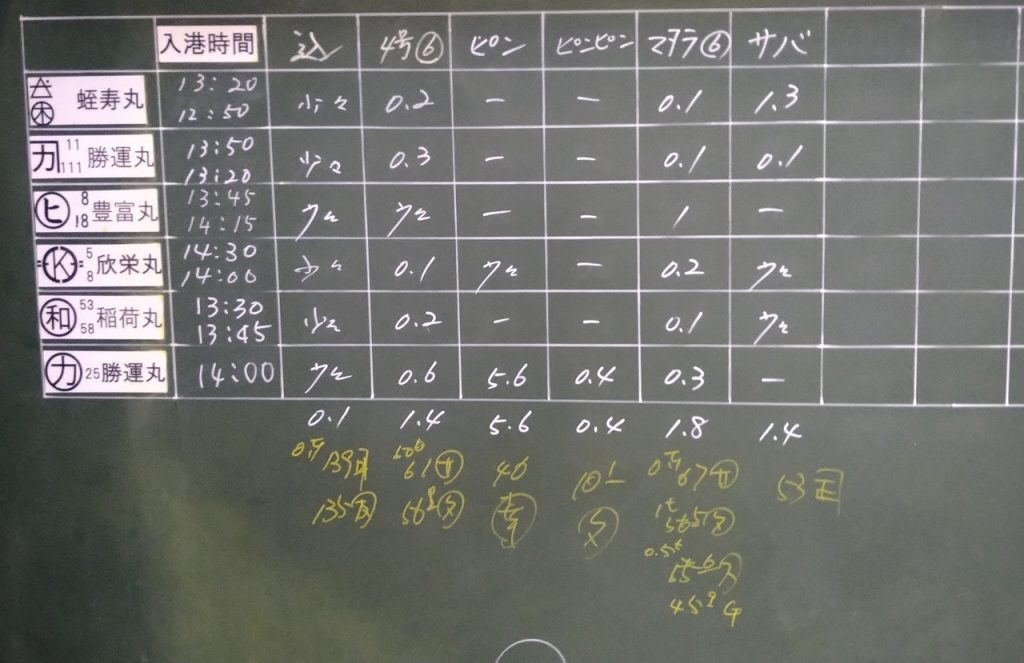 入港時間 込 4号⑥ ピン ピンピン マダラ⑥ サバ
蛭寿丸 13:20 12:50 少々 0.2 ー ー 0.1 1.3
11 111 勝運丸 13:50 13:20 少々 0.3 ー ー 0.1 0.1
ヒ 8 18 豊富丸 13:45 14:15 少々 少々 ー ー 1 ー
K 5 8 欣栄丸 14:30 14:00 少々 0.1 少々 ー 0.2 少々
和 53 58 稲荷丸 13:30 13:45 少々 0.2 ー ー 0.1 少々
カ 25 勝運丸 14:00 少々 0.6 5.6 0.4 0.3 ー
0.1 1.4 5.6 0.4 1.8 1.4
139 61 46 67 53
135 56
45